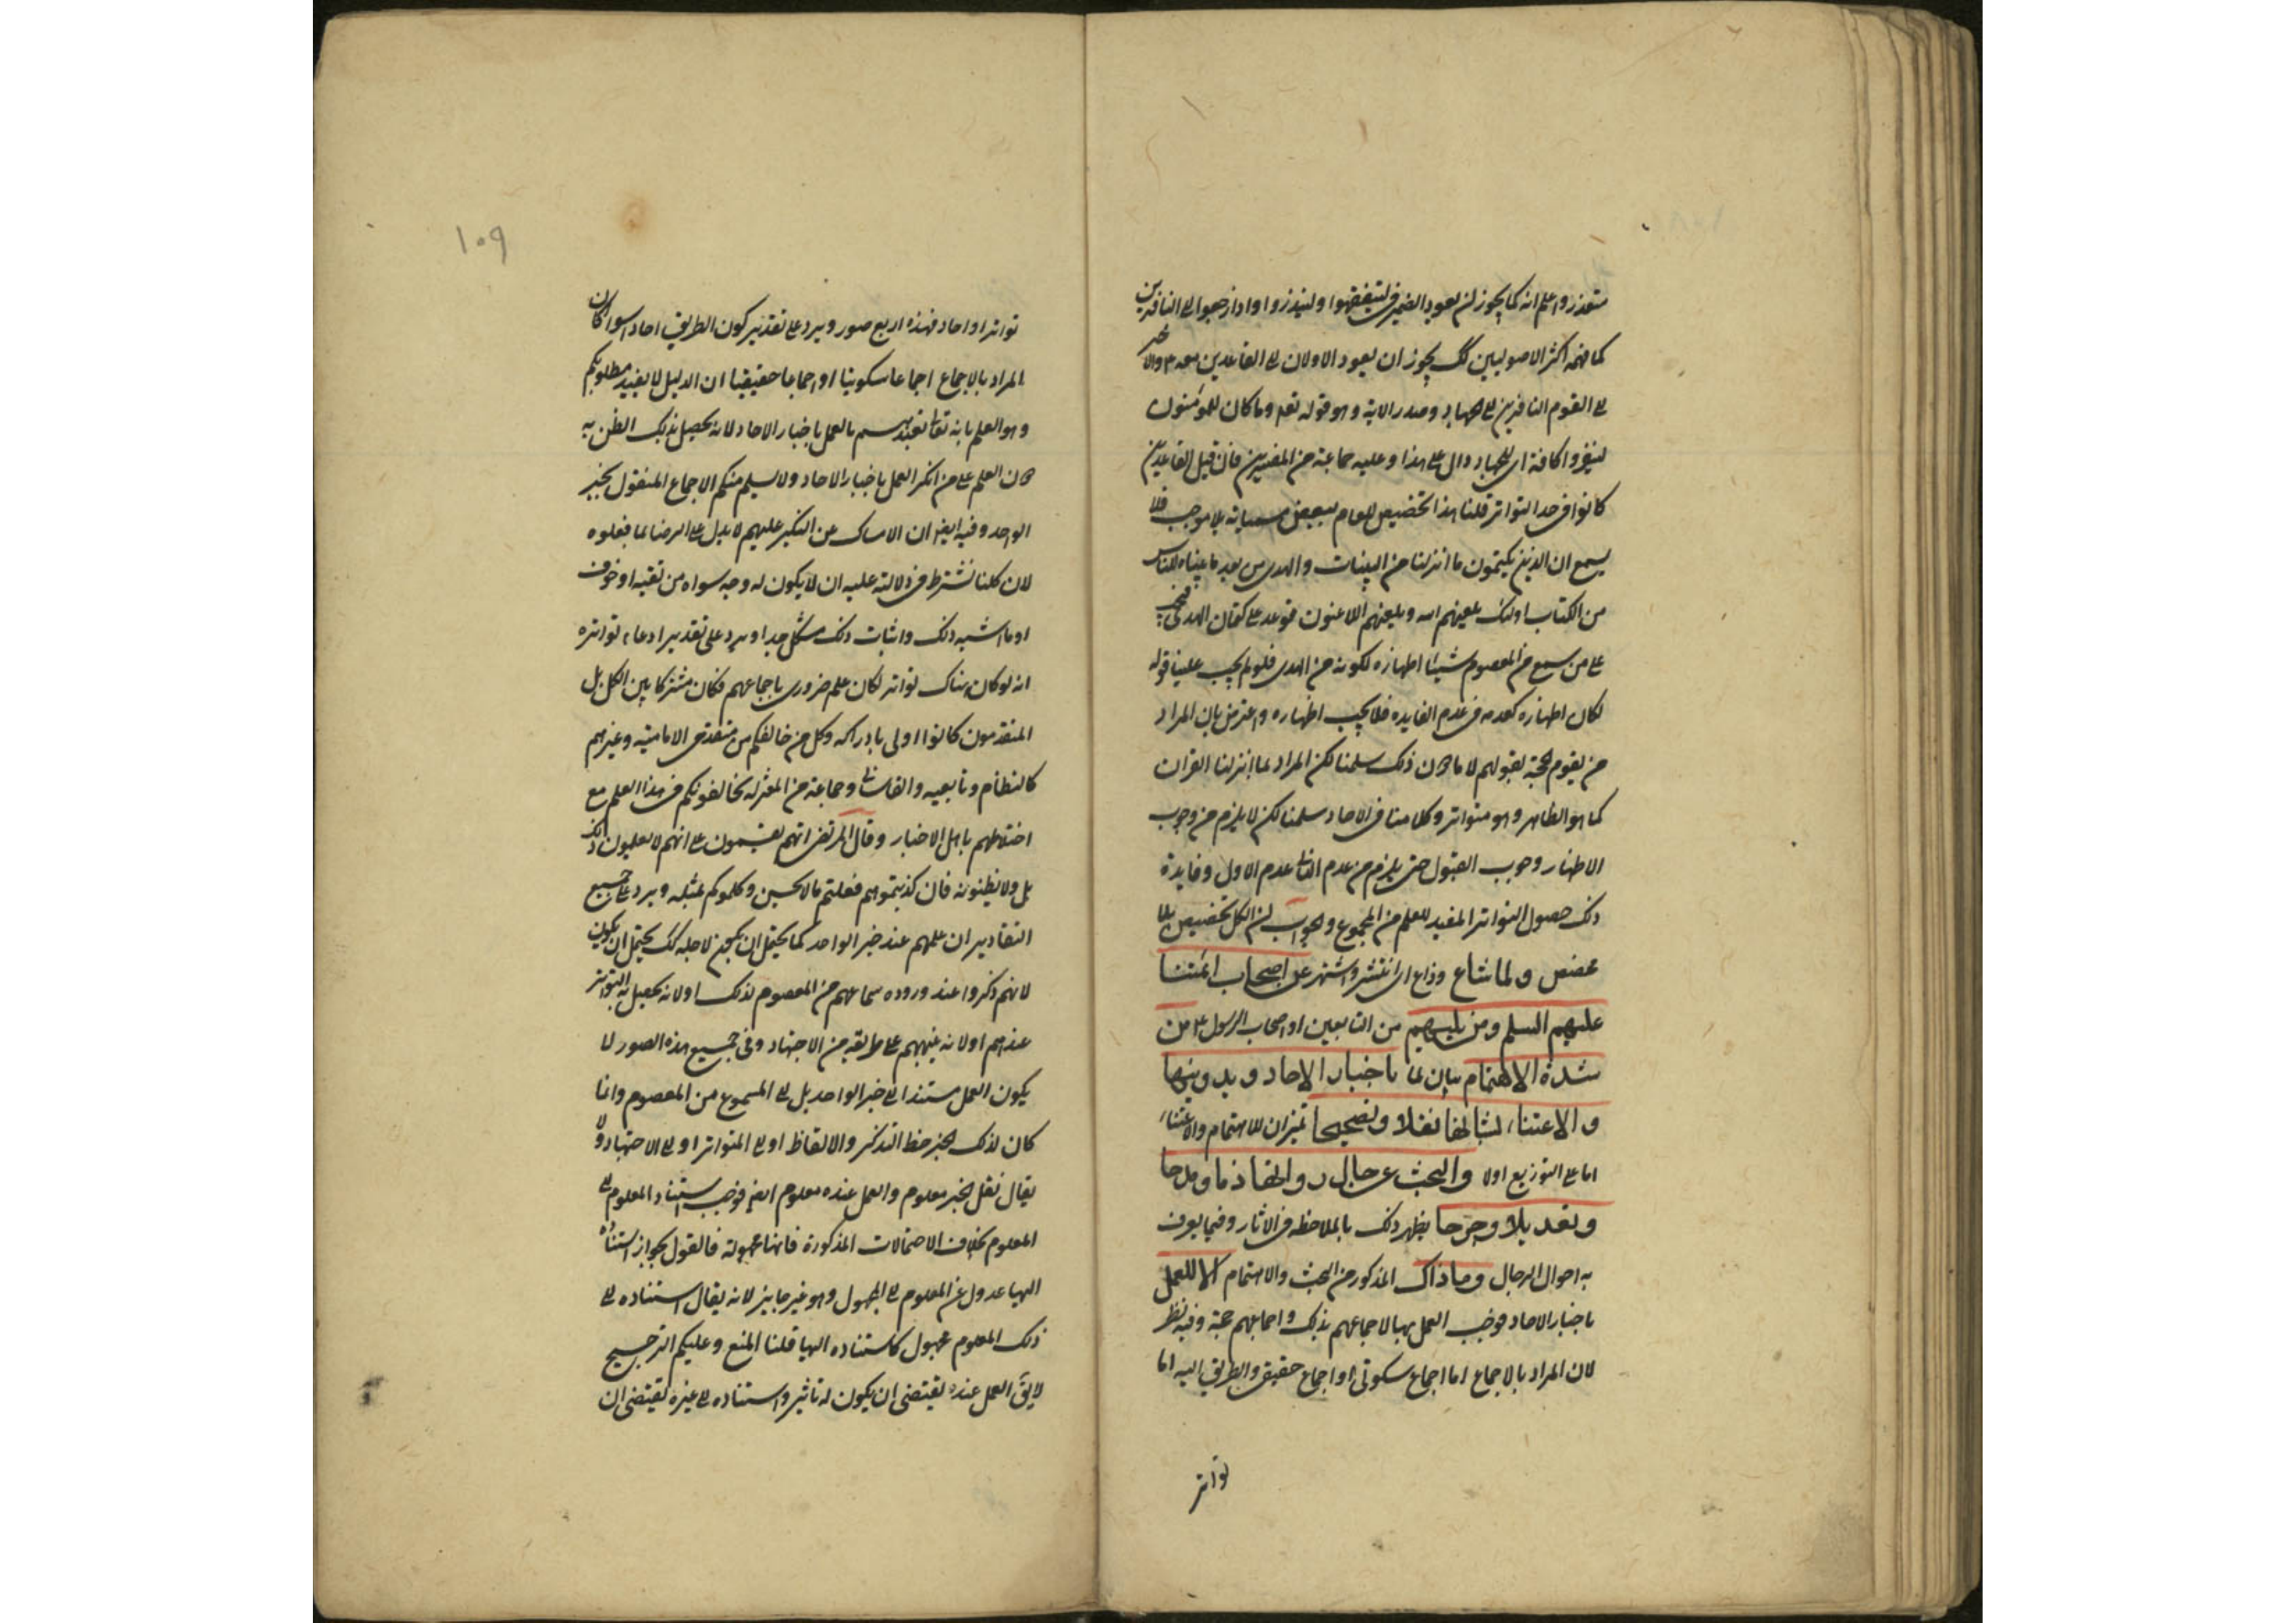 متعذر واعلم انه كما يجوز ان يعود الضمير في ليتفقهوا ولينذروا واذا رجعوا الى النافرين
كما فهمه اكثر الاصوليين كك يجوز ان يعود الاولان الى القاعدين معه ۴ والاخير
الى القوم النافرين الى الجهاد وصدر الاية وهو قوله تعم وما كان المؤمنون
لينفروا كافة اى للجهاد دال على هذا وعليه جماعة من المفسرين فان قيل القاعدين
كانوا في حد التواتر قلنا هذا تخصيص للعام ببعض مسمياته بلا موجب فلا
يسمع ان الذين يكتمون ما انزلنا من البينات والهدى من بعد ما بيناه للناس
من الكتاب اولئك يلعنهم الله ويلعنهم اللاعنون توعد على كتمان الهدى فيجب
على من سمع من المعصوم شيئا اظهاره لكونه من الهدى فلو لم يجب علينا قوله
لكان اظهاره كعدمه في عدم الفايده فلا يجب اظهاره واعترض بان المراد
من يقوم الحجة بقولهم لا ما دون ذلك سلمنا لكن المراد بما انزلنا القران
كما هو الظاهر وهو متواتر وكلامنا في الاحاد سلمنا لكن لا يلزم من وجوب
الاظهار وجوب القبول حتى يلزم من عدم الثانى عدم الاول وفايدة
ذلك حصول التواتر المفيد للعلم من المجموع والجواب ان الكل تخصيص بلا
مخصص ولما شاع وذاع اى انتشر واشتهر عن اصحاب ائمتنا
عليهم السلم ومن يليهم من التابعين او اصحاب الرسول ع من
شدة الاهتمام بيان لما باخبار الاحاد وتدوينها
والاعتناء بشانها نقلا وتصحيحا تميزان للاهتمام والاعتناء
اما على التوزيع اولا والبحث عن حال رواتها ذما ومدحا
وتعديلا وجرحا يظهر ذلك بالملاحظه في الاثار وفيما يعرف
به احوال الرجال وما ذاك المذكور من البحث والاهتمام الا للعمل
باخبار الاحاد فوجب العمل بها لاجماعهم بذلك واجماعهم حجة وفيه نظر
لان المراد بالاجماع اما اجماع سكوتى او اجماع حقيقى والطريق اليه اما
تواتر
١٠٩
تواتر او احاد فهذه اربع صور ويرد على تقدير كون الطريق احاد سواء كان
المراد بالاجماع اجماعا سكوتيا او اجماعا حقيقيا ان الدليل لا يفيد مطلوبكم
وهو العلم بانه تعالى تعبدهم بالعمل باخبار الاحاد لانه يحصل بذلك الظن به
دون العلم على من انكر العمل باخبار الاحاد ولا يسلم منكم الاجماع المنقول بخبر
الواحد وفيه ايضا ان الامساك عن النكير عليهم لا يدل على الرضا بما فعلوه
لان كلنا نشترط في دلالته عليه ان لا يكون له وجه سواه من تقيه او خوف
او ما اشبه ذلك واثبات ذلك مشكل جدا ويرد على تقدير ادعاء تواتره
انه لو كان هناك تواتر لكان علم ضرورى باجماعهم فكان مشتركا بين الكل بل
المتقدمون كانوا اولى بادراكه وكل من خالفكم من متقدمى الامامية وغيرهم
كالنظام وتابعيه والقاسانى وجماعة من المعتزله يخالفونكم في هذا العلم مع
اختلاطهم باهل الاخبار وقال المرتضى انهم يقسمون على انهم لا يعلمون ذلك
بل ولا يظنونه فان كذبتموهم فعلتم ما لا يحسن وكلموكم بمثله ويرد على جميع
التقادير ان عملهم عند خبر الواحد كما يحتمل ان يكون لاجله كك يحتمل ان يكون
لانهم ذكروا عند وروده سماعهم من المعصوم لذلك اولا لانه يحصل به التواتر
عندهم اولا لانه ينبههم على طريقه من الاجتهاد وفي جميع هذه الصور لا
يكون العمل مستندا الى خبر الواحد بل الى المسموع من المعصوم وانما
كان لذلك الخبر حظ التذكير والالفاظ او الى المتواتر او الى الاجتهاد ولا
يقال نقل الخبر معلوم والعمل عنده معلوم ايضا فوجب استناد المعلوم الى
المعلوم بخلاف الاحتمالات المذكورة فانها مجهولة فالقول بجواز استناده
اليها عدول عن المعلوم الى المجهول وهو غير جايز لانه يقال استناده الى
ذلك المعلوم مجهول كاستناده اليها قلنا المنع وعليكم الترجيح
لا يق العمل عنده يقتضى ان يكون له تاثير واستناده الى غيره يقتضى ان